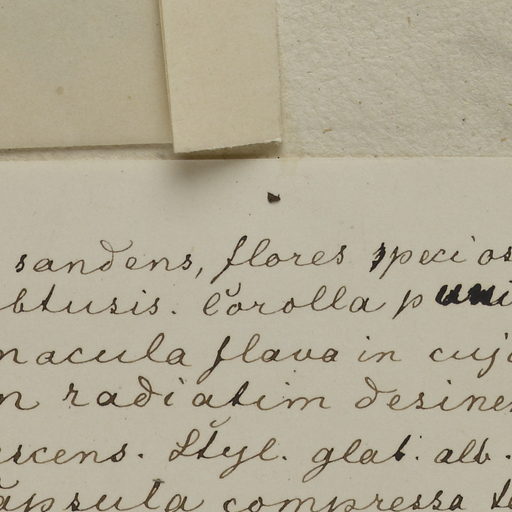 sandens, flores specios
btusis. Corolla puni
macula flava in cuj
n radiatim desines
scens. Styl. glab. alb.
apsula compressa